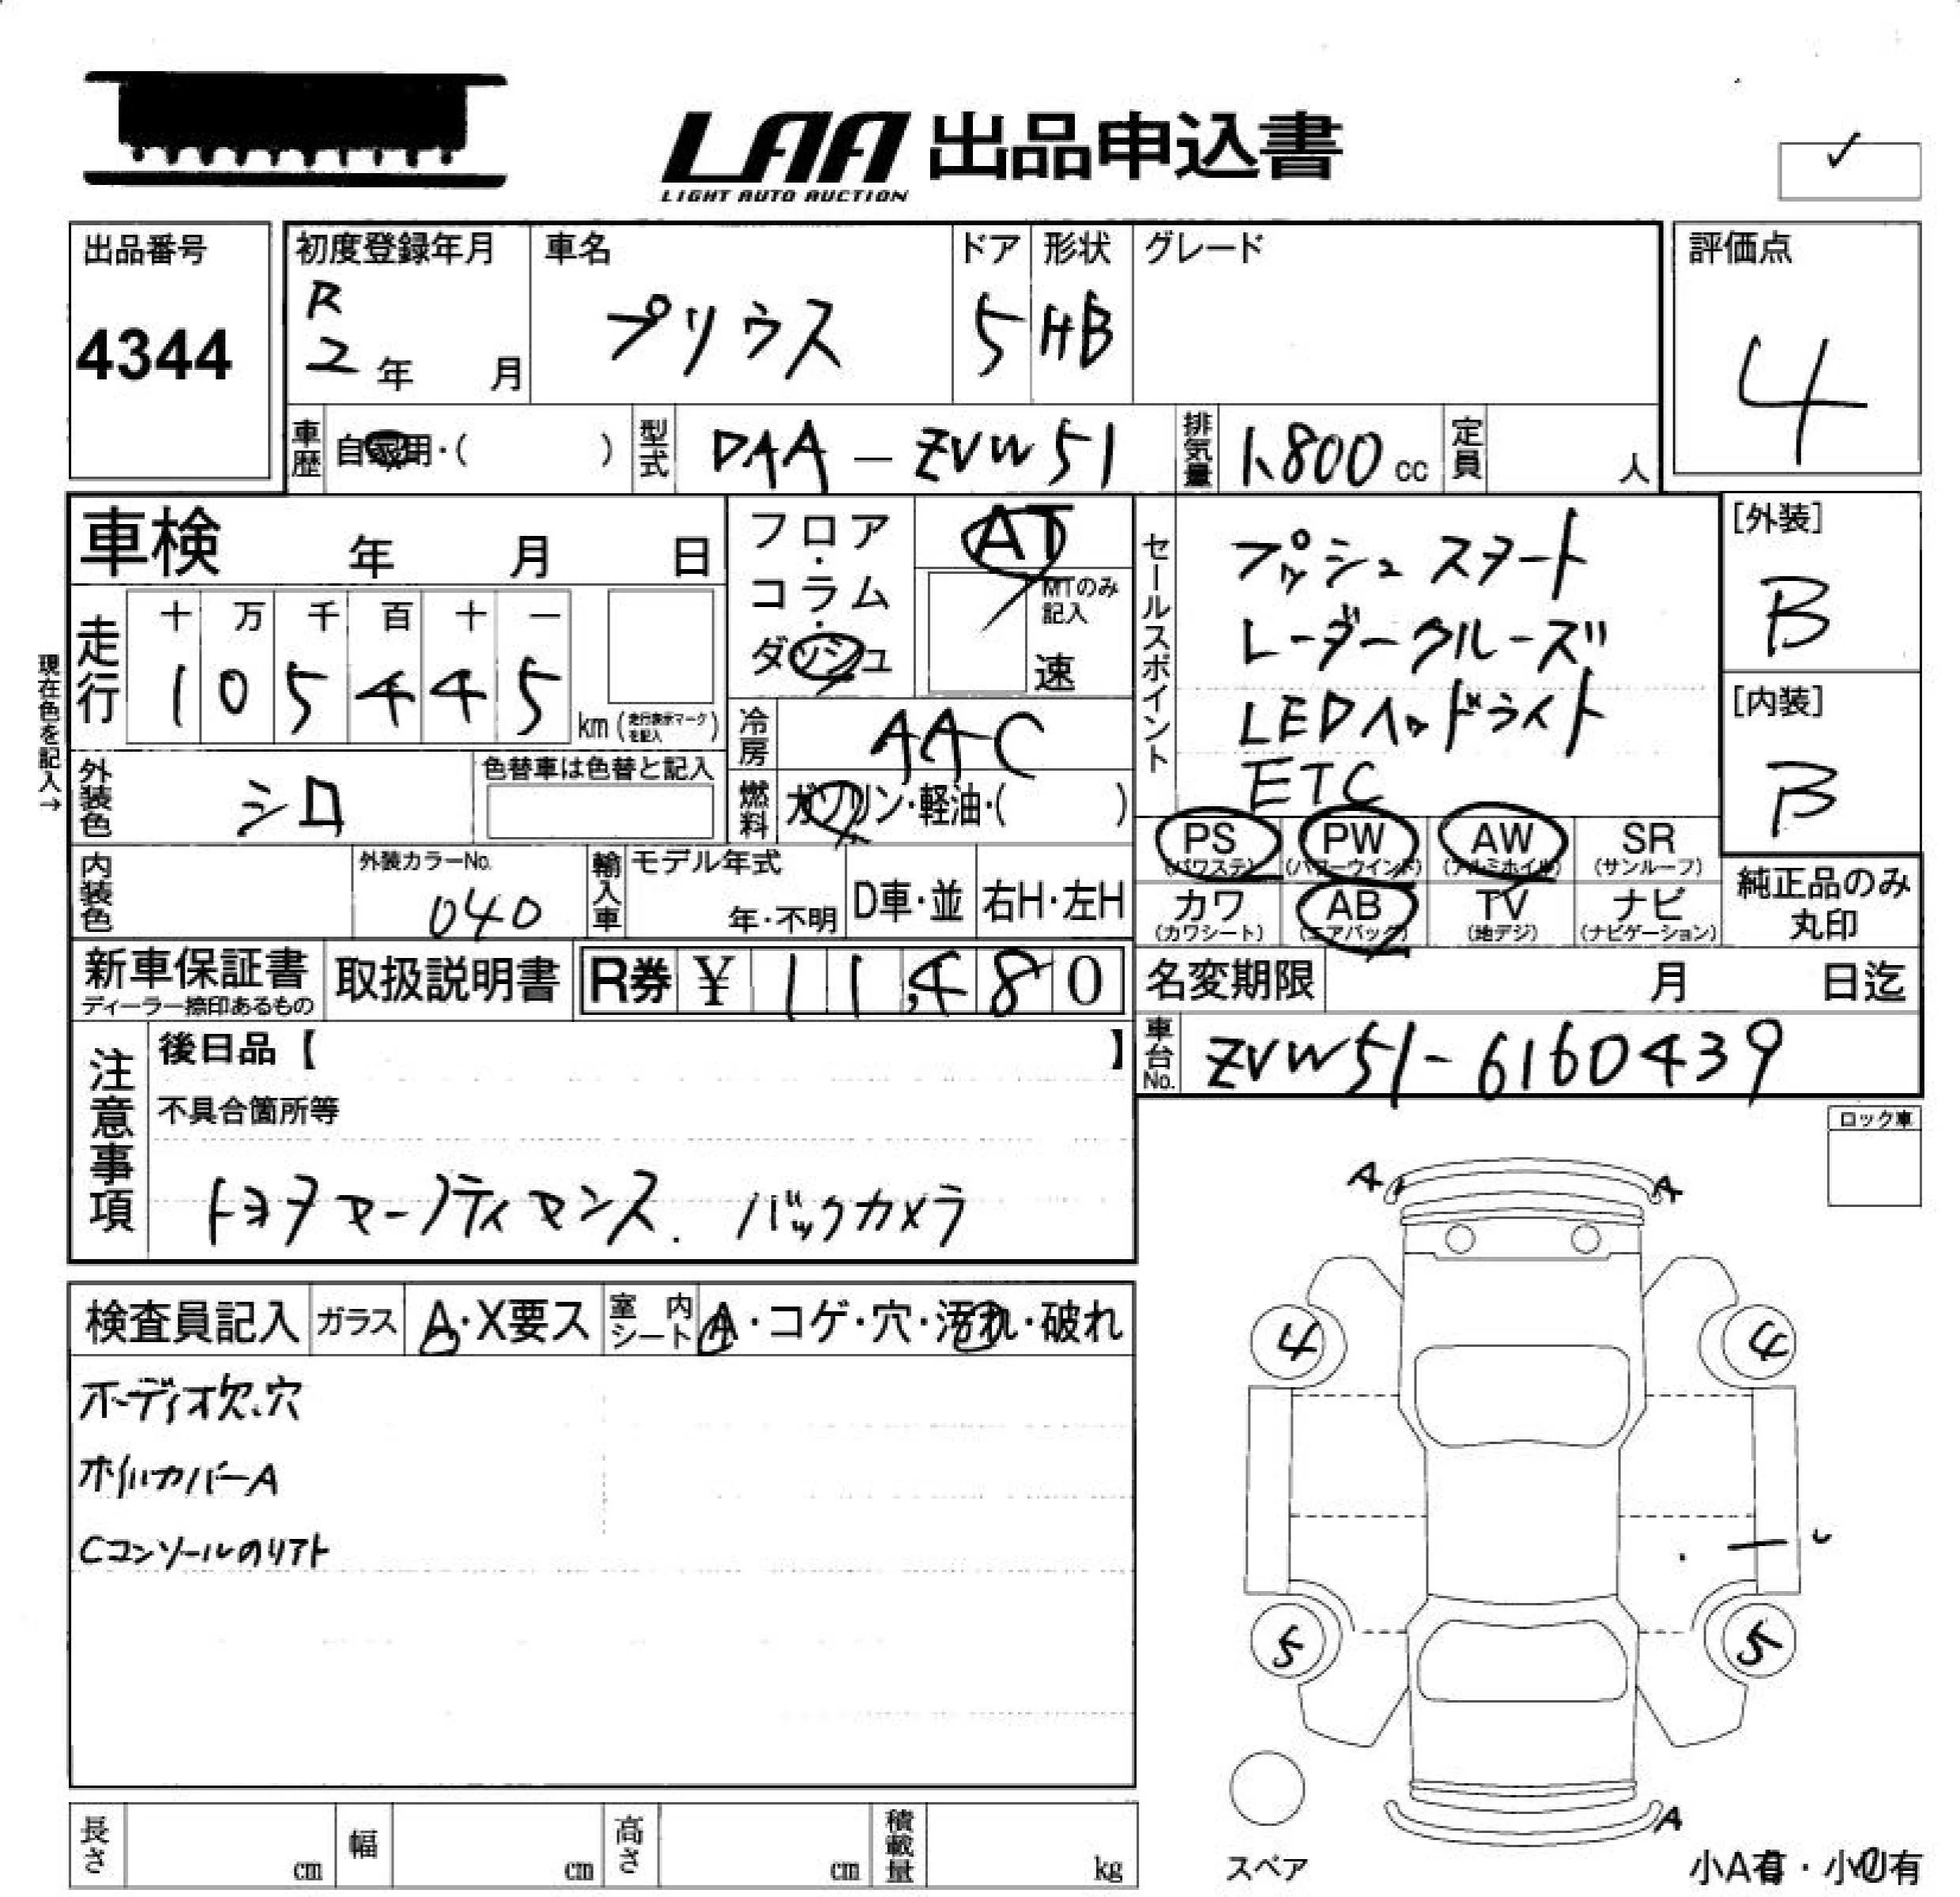 LAA 出品申込書
LIGHT AUTO AUCTION
✓
出品番号
4344
初度登録年月
R
2年 月
車名
プリウス
ドア
5
形状
HB
グレード
評価点
4
車歴 自家用・( )
型式 DAA-ZVW51
排気量 1,800 cc
定員 人
車検 年 月 日
走行
十 万 千 百 十 一
1 0 5 4 4 5
km (走行表示マークを記入)
現在色を記入→
外装色 シロ
色替車は色替と記入
内装色
外装カラーNo.
040
フロア・コラム・ダッシュ
AT
MTのみ記入
速
冷房 AAC
燃料 ガソリン・軽油・( )
輸入車 モデル年式
年・不明
D車・並
右H・左H
セールスポイント
プッシュスタート
レーダークルーズ
LEDヘッドライト
ETC
[外装]
B
[内装]
B
PS (パワステ)
PW (パワーウインド)
AW (アルミホイル)
SR (サンルーフ)
カワ (カワシート)
AB (エアバック)
TV (地デジ)
ナビ (ナビゲーション)
純正品のみ丸印
新車保証書
ディーラー捺印あるもの
取扱説明書
R券 ¥ 11,480
名変期限 月 日迄
車台No. ZVW51-6160439
注意事項
後日品【 】
不具合箇所等
トヨタマーノティマンス. バックカメラ
ロック車
検査員記入
ガラス A・X要ス
室内シート A・コゲ・穴・汚れ・破れ
オーディオ欠、穴
ホイルカバーA
Cコンソールのリアト
A A
4 4
5 5
A
スペア
小A有・小U有
長さ cm
幅 cm
高さ cm
積載量 kg